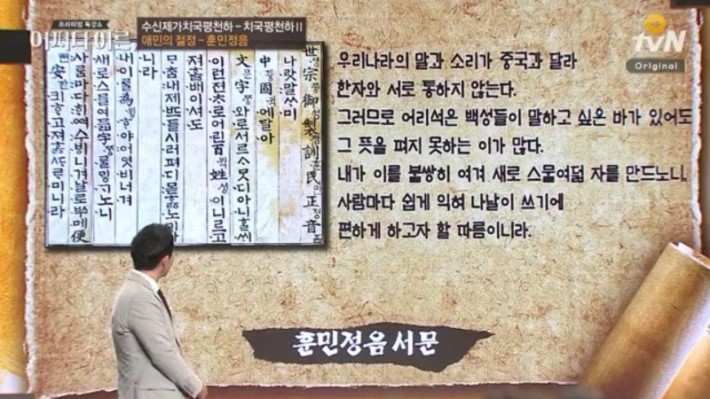 프리미엄 특강쇼
어쩌다어른
수신제가치국평천하 - 치국평천하 II
애민의 절정 - 훈민정음
tvN
Original
世宗御製訓民正音
나랏말ᄊᆞ미
中國에달아
文字와로서르ᄉᆞᄆᆞᆺ디아니ᄒᆞᆯᄊᆡ
이런젼ᄎᆞ로어린百姓이니르고
져홇배이셔도
ᄆᆞᄎᆞᆷ내제ᄠᅳ들시러펴디몯ᄒᆞᇙ노미하
니라
내이ᄅᆞᆯ爲ᄒᆞ야어엿비너겨
새로스믈여듧字ᄅᆞᆯᄆᆡᆼᄀᆞ노니
사ᄅᆞᆷ마다ᄒᆡᅇᅧ수ᄫᅵ니겨날로ᄡᅮ메便
安킈ᄒᆞ고져ᄒᆞᇙᄯᆞᄅᆞ미니라
우리나라의 말과 소리가 중국과 달라
한자와 서로 통하지 않는다.
그러므로 어리석은 백성들이 말하고 싶은 바가 있어도
그 뜻을 펴지 못하는 이가 많다.
내가 이를 불쌍히 여겨 새로 스물여덟 자를 만드노니,
사람마다 쉽게 익혀 나날이 쓰기에
편하게 하고자 할 따름이니라.
훈민정음 서문